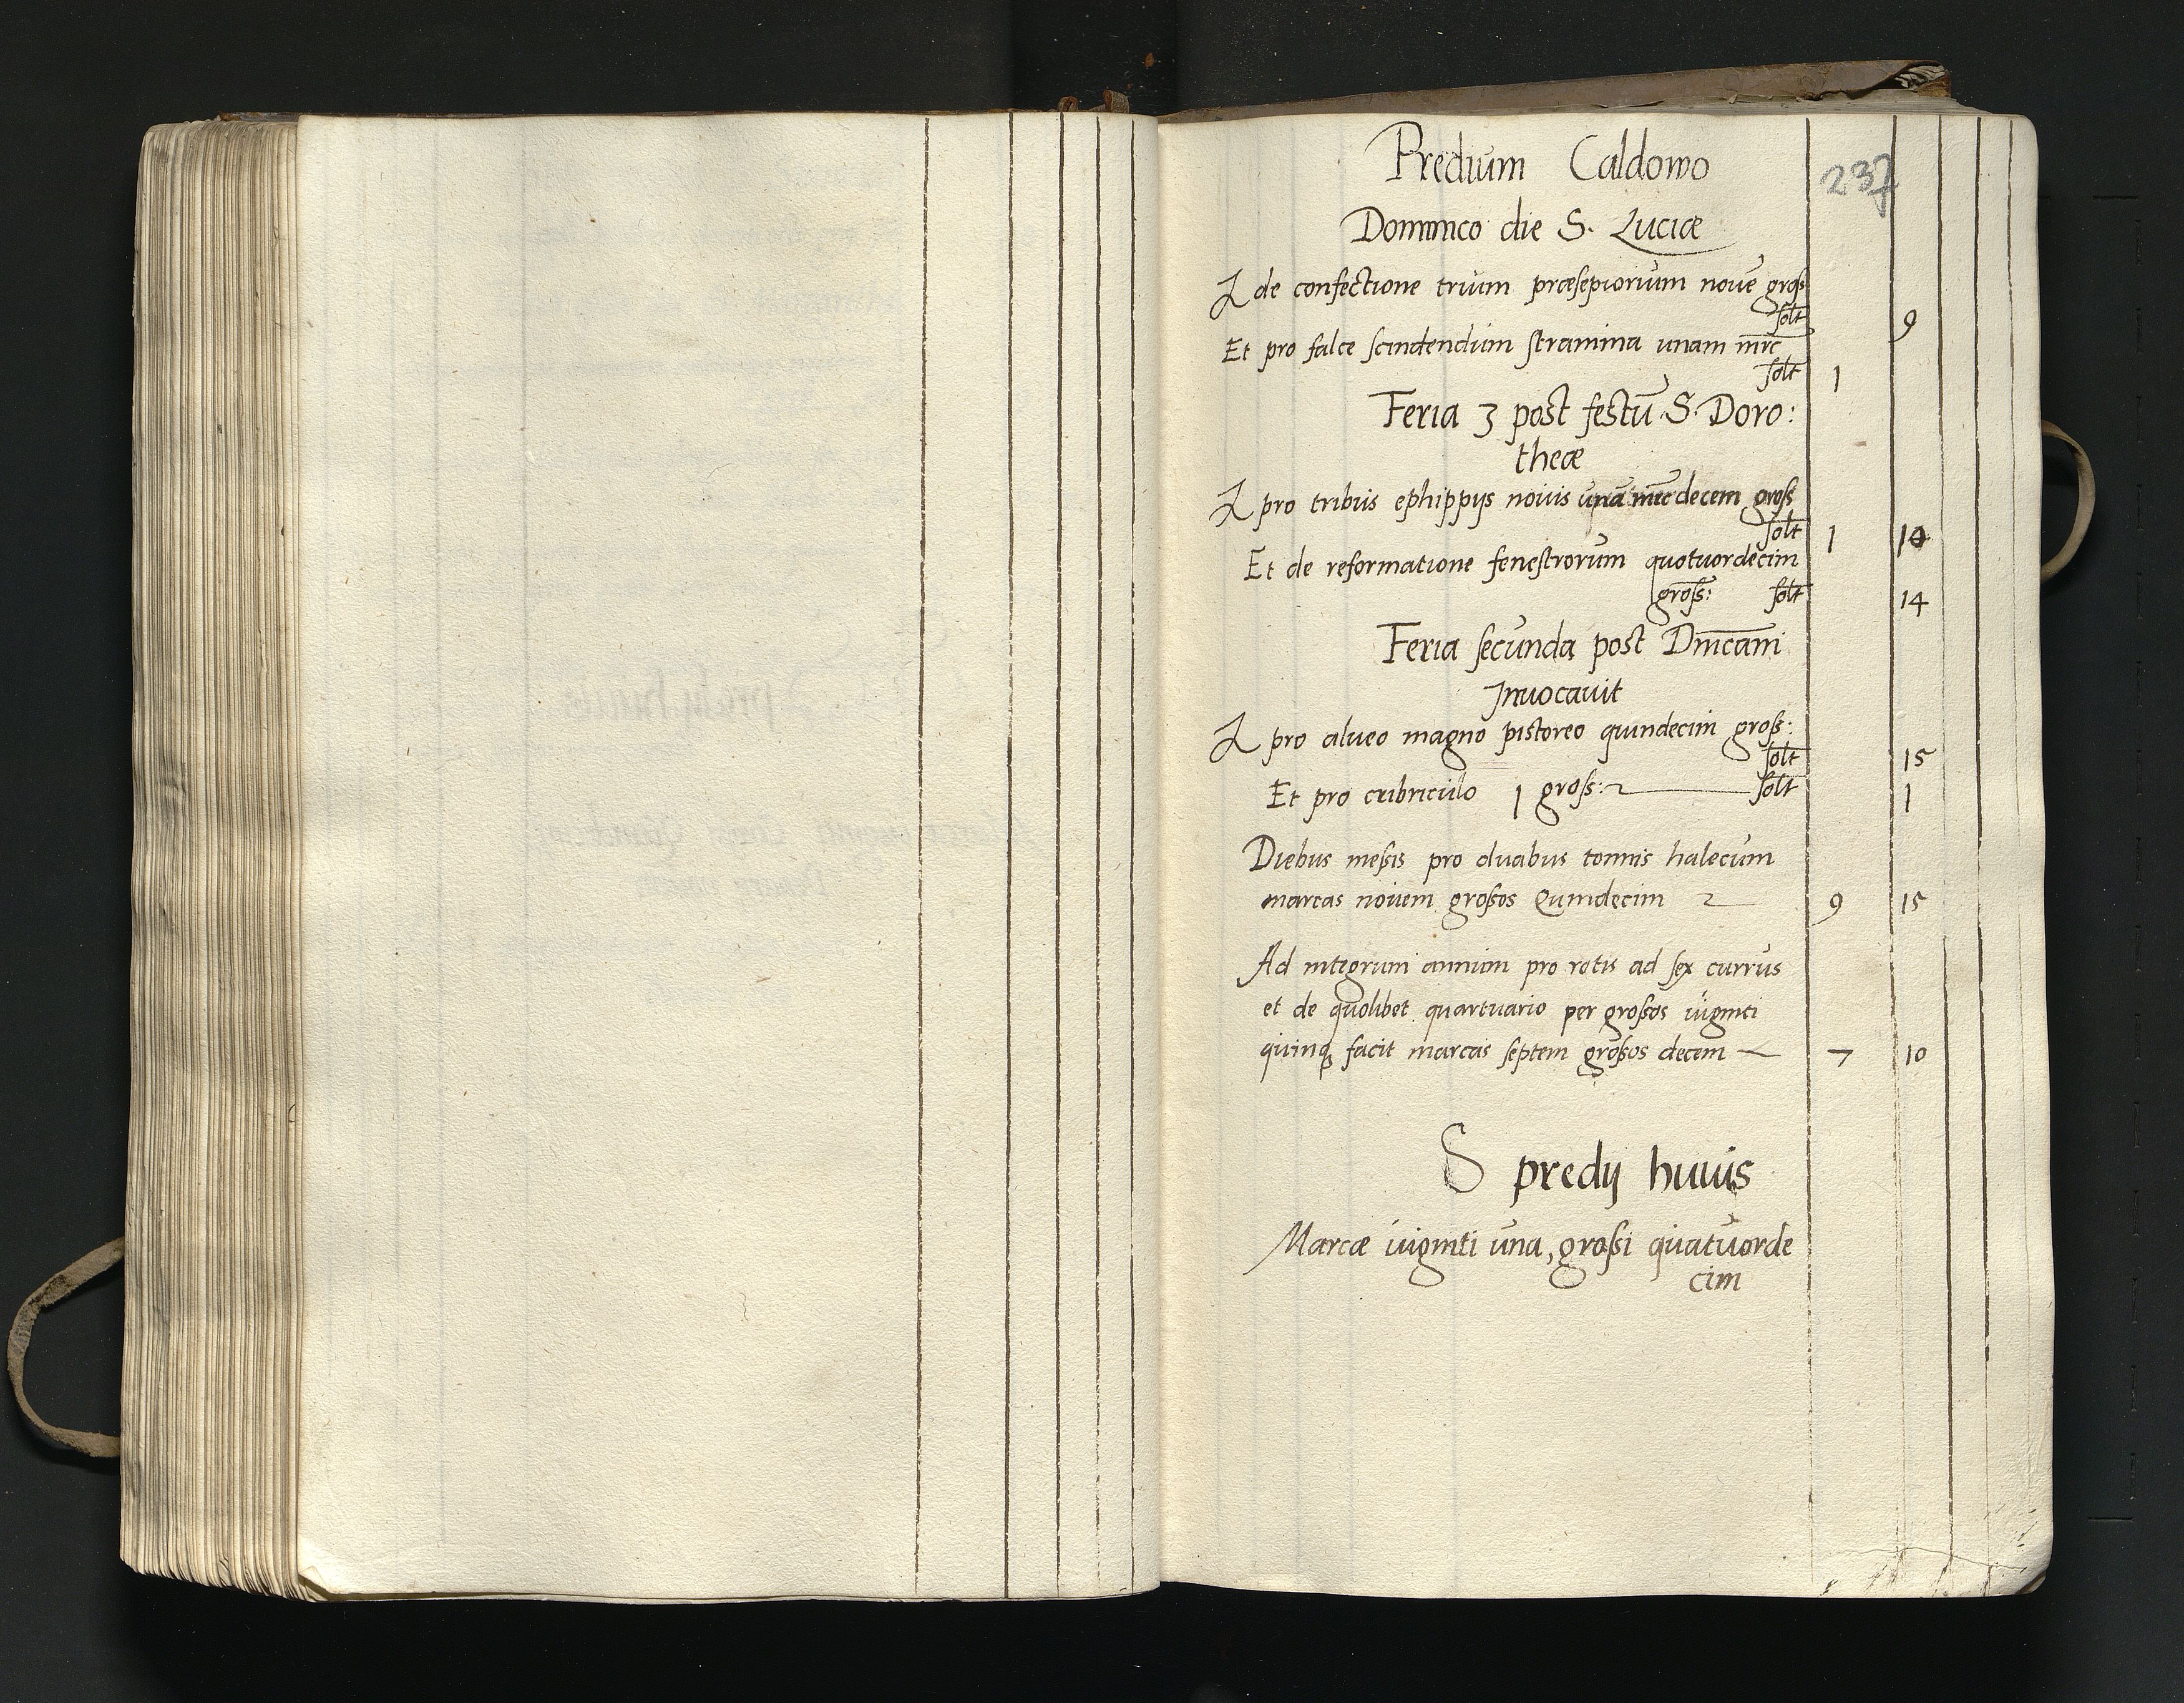 Predium Caldowo
237
Dominico die S. Luciæ
de confectione trium præsepiorum novē gross
solt 9
Et pro falce scindendum stramina unam mrc
solt 1
Feria 3 post festū S. Doro:
theæ
pro tribus ephippijs novis unā mrc decem gross
solt 1 10
Et de reformatione fenestrorum quotuordecim
gross: solt 14
Feria secunda post Dnīcam
Invocavit
pro alveo magno pistoreo quindecim gross:
solt 15
Et pro cribriculo 1 gross: solt 1
Diebus messis pro duabus tonnis halecum
marcas novem grossos Quindecim 9 15
Ad integrum annum pro rotis ad sex currus
et de quolibet quartuario per grossos viginti
quinq facit marcas septem grossos decem 7 10
S predij huius
Marcæ viginti una, grossi quatuorde
cim